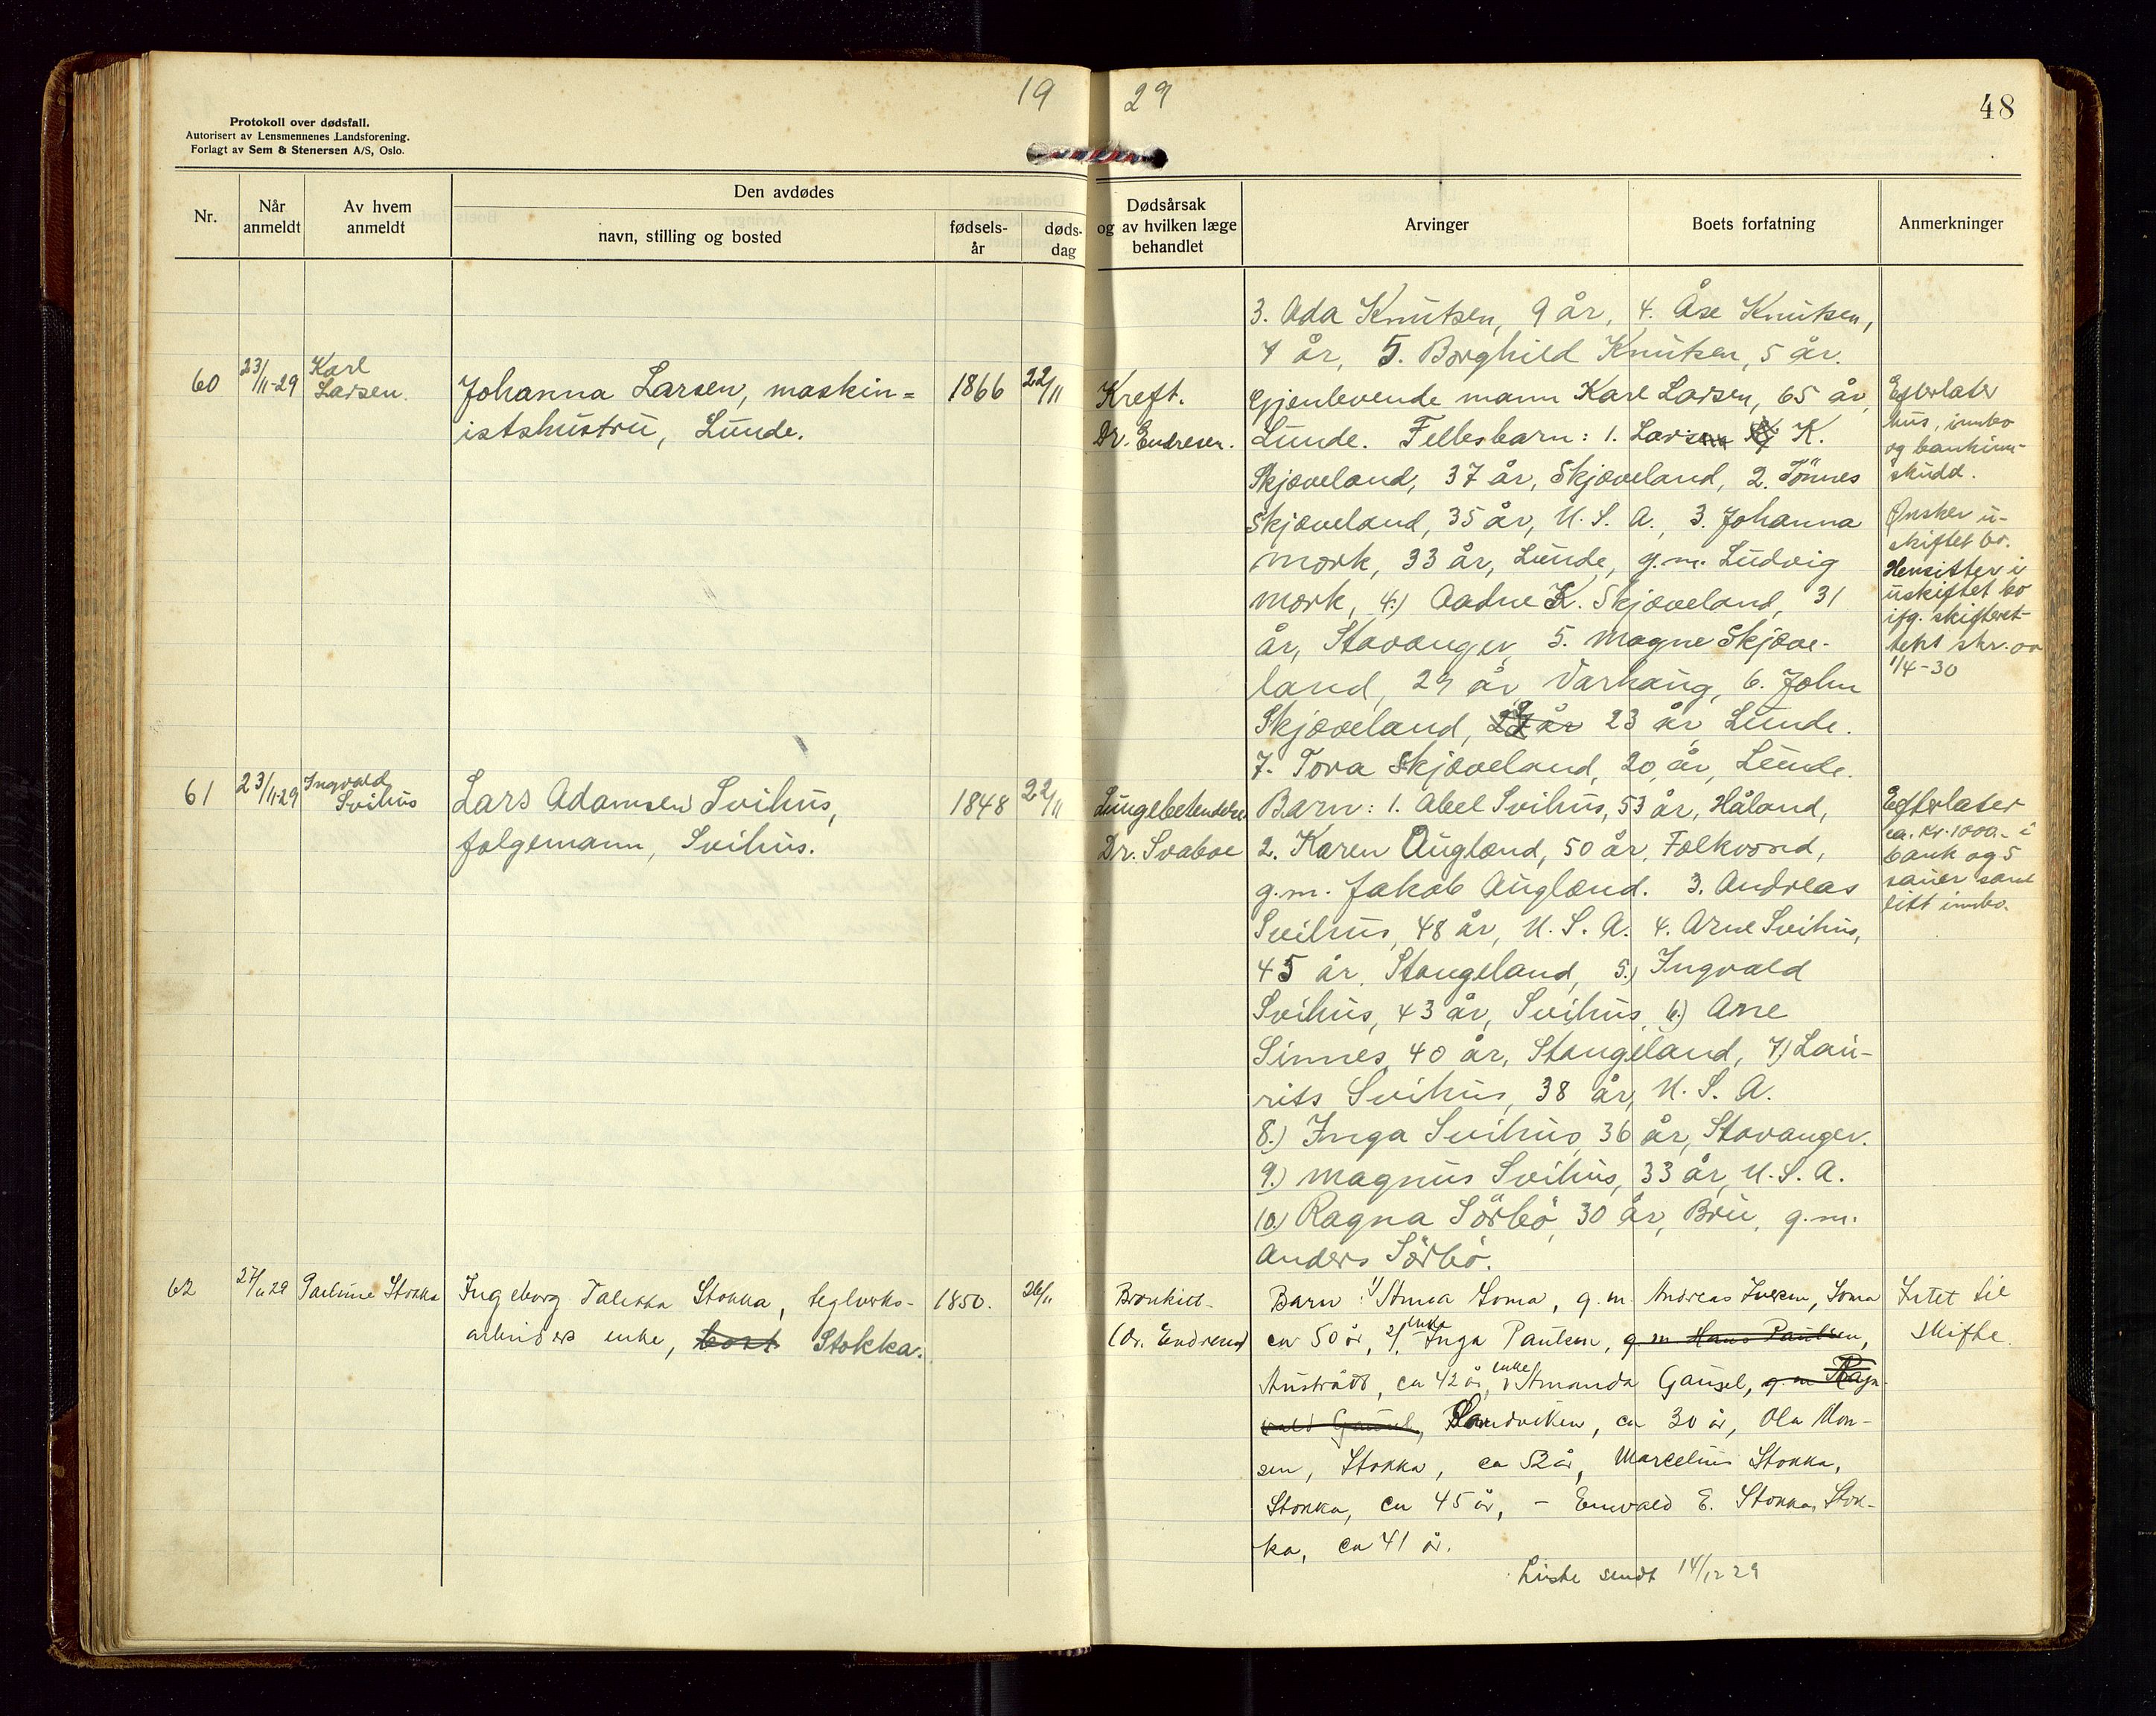 19 29
48
Protokoll over dødsfall.
Autorisert av Lensmennenes Landsforening.
Forlagt av Sem & Stenersen A/S, Oslo.
Nr.
Når anmeldt
Av hvem anmeldt
Den avdødes
navn, stilling og bosted
fødsels-år
døds-dag
Dødsårsak og av hvilken læge behandlet
Arvinger
Boets forfatning
Anmerkninger
3. Ada Knutsen, 9 år, 4. Åse Knutsen,
7 år, 5. Borghild Knutsen, 5 år.
60
23/11-29
Karl
Larsen.
Johanna Larsen, maskin=
istshustru, Lunde.
1866
22/11
Kreft.
Dr. Endresen.
Gjenlevende mann Karl Larsen, 65 år,
Lunde. Fellesbarn: 1. Lars K.
Skjæveland, 37 år, Skjæveland, 2. Tönnes
Skjæveland, 35 år, U.S.A., 3. Johanna
Mork, 33 år, Lunde, g.m. Ludvig
Mork, 4.) Aadne K. Skjæveland, 31
år, Stavanger, 5. Magne Skjæve-
land, 29 år, Varhaug, 6. John
Skjæveland, 23 år, Lunde.
7. Tora Skjæveland, 20 år, Lunde.
Efterlater
hus, innbo
og bankinn-
skudd.
Ønsker u-
skiftet bo.
Hensitter i
uskiftet bo
ifg. skifteret-
tens skr. av
1/4-30
61
23/11-29
Ingvald
Svihus
Lars Adamsen Svihus,
følgemann, Svihus.
1848
22/11
Lungebetendelse
Dr. Svaboe
Barn: 1. Abel Svihus, 53 år, Håland,
2. Karen Auglænd, 50 år, Folkvord,
g.m. Jakob Auglænd. 3. Andreas
Svihus, 48 år, U.S.A. 4. Arne Svihus,
45 år, Stangeland, 5.) Ingvald
Svihus, 43 år, Svihus, 6.) Ane
Sinnes, 40 år, Stangeland, 7.) Lau-
rits Svihus, 38 år, U.S.A.
8.) Inga Svihus, 36 år, Stavanger.
9.) Magnus Svihus, 33 år, U.S.A.
10.) Ragna Sörbö, 30 år, Bru, g.m.
Anders Sörbö.
Efterlater
ca. kr. 1000.- i
bank og 5
sauer samt
litt innbo.
62
27/11 29
Pauline Stokka
Ingeborg Taletta Stokka, teglverks-
arbeiders enke, bost Stokka.
1850.
26/11
Bronkitt-
(Dr. Endresen)
Barn: 1/ Anna Soma, g.m. Andreas Iversen, Soma
ca 50 år, 2/ enke Inga Paulsen, g m Hans Paulsen,
Austrått, ca 42 år, enke Amanda Gausel, g. m Ragn-
vald Gausel, Sandviken, ca 30 år, Ola Mon-
sen, Stokka, ca 52 år, Marcelius Stokka,
Stokka, ca 45 år, - Enevald E. Stokka, Stok-
ka, ca 41 år.
Liste sendt 14/12 29
Intet til
skifte.